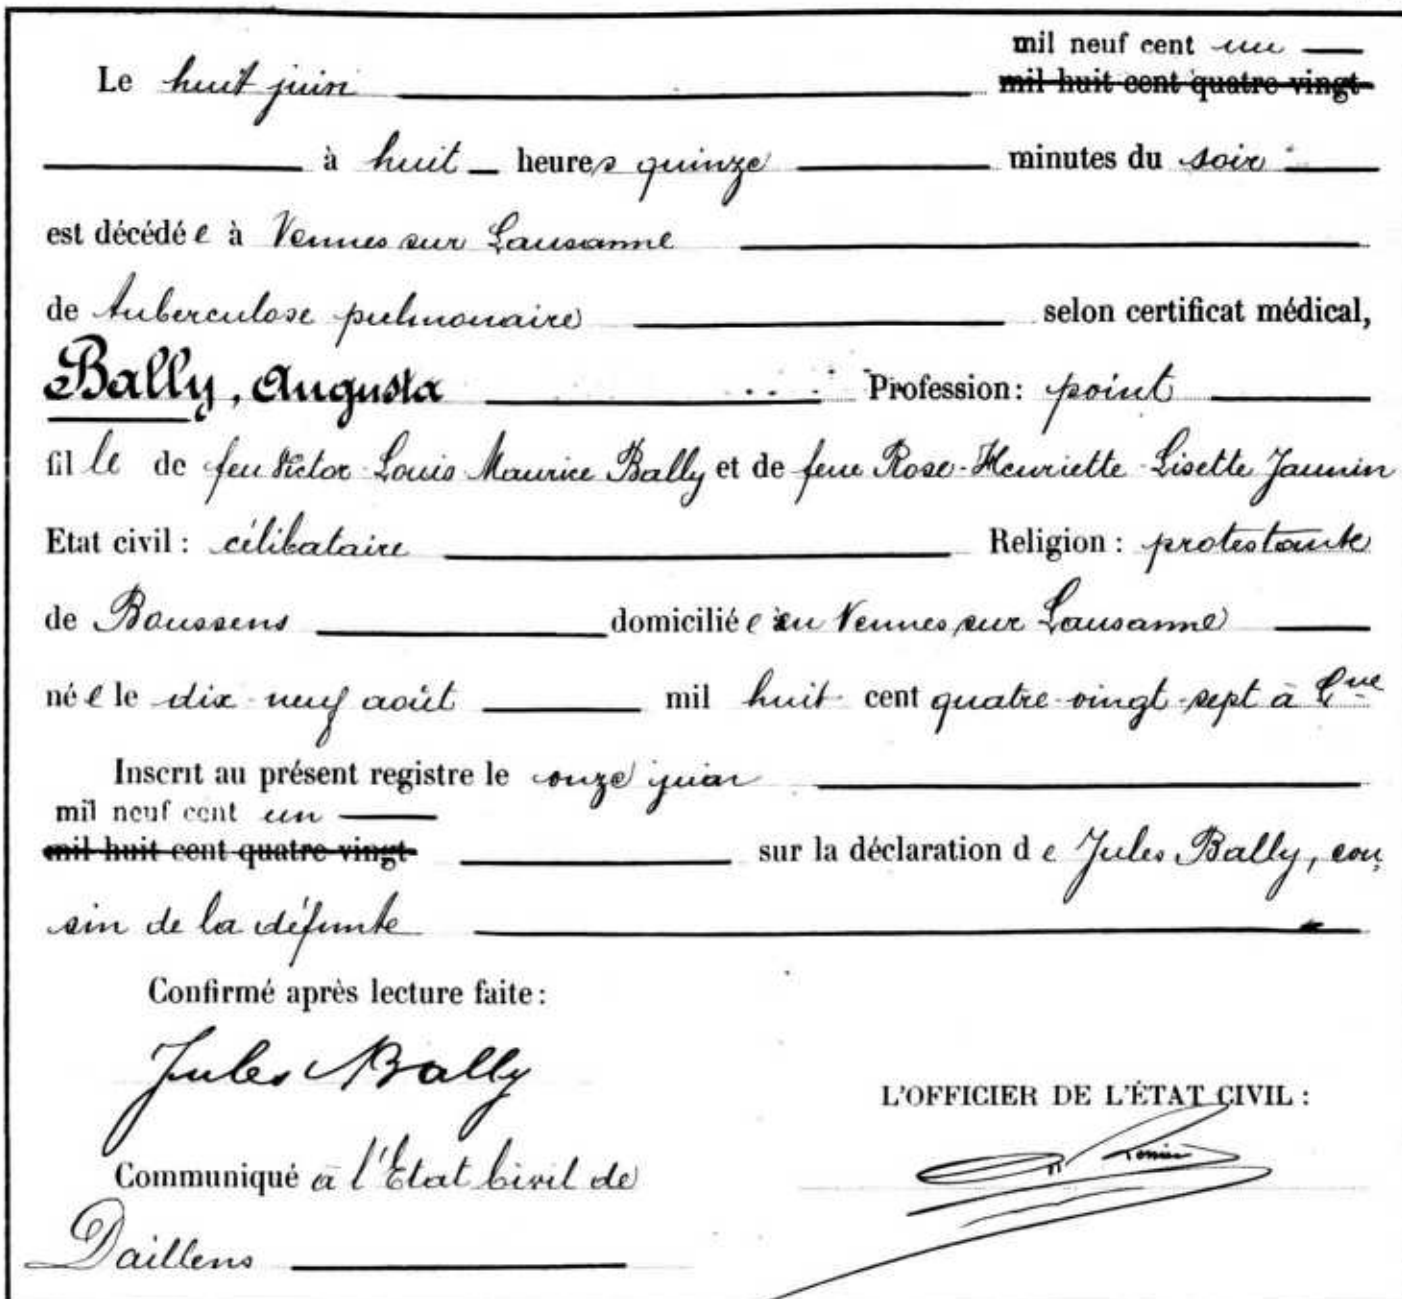 mil neuf cent un
Le huit juin mil huit cent quatre vingt
à huit heures quinze minutes du soir
est décédée à Vennes sur Lausanne
de tuberculose pulmonaire selon certificat médical,
Bally, Augusta Profession: point
fille de feu Victor-Louis Maurice Bally et de feue Rose-Henriette-Lisette Jaunin
Etat civil: célibataire Religion: protestante
de Boussens domiciliée en Vennes sur Lausanne
née le dix-neuf août mil huit cent quatre-vingt-sept à Lne
Inscrit au présent registre le onze juin
mil neuf cent un
mil huit cent quatre vingt sur la déclaration de Jules Bally, cou
sin de la défunte
Confirmé après lecture faite:
Jules Bally
L'OFFICIER DE L'ÉTAT CIVIL:
Communiqué à l'Etat Civil de
Daillens